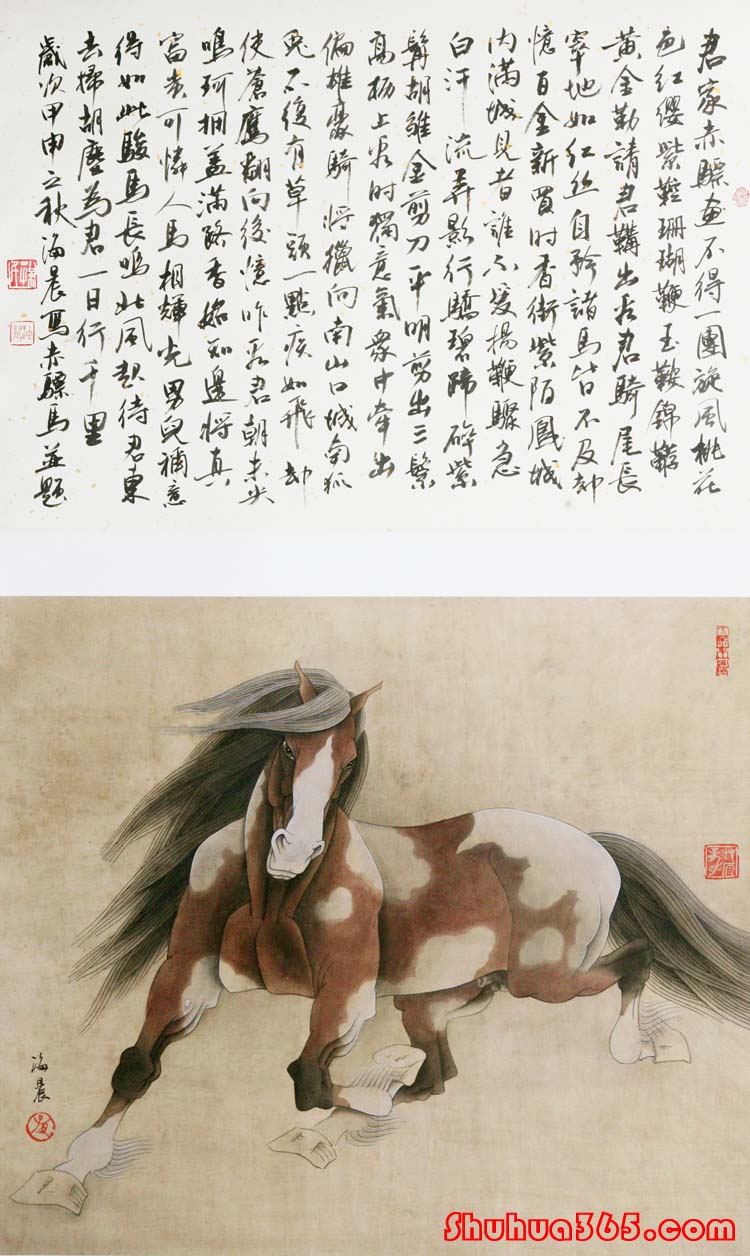 君家赤驃畫不得一團旋風桃花
色紅纓紫鞚珊瑚鞭玉鞍錦韉
黃金勒請君鞲出看君騎尾長
窣地如紅絲自矜諸馬皆不及却
憶百金新買時香街紫陌鳳城
内滿城見者誰不愛揚鞭驟急
白汗流弄影行驕碧蹄碎紫
髯胡雛金剪刀平明剪出三鬃
高枥上看時獨意氣衆中牽出
偏雄豪騎將獵向南山口城南狐
兔不復有草頭一點疾如飛却
使蒼鷹翻向後憶昨看君朝未央
鳴珂擁盖滿路香始知邊將真
富貴可憐人馬相輝光男兒稱意
得如此駿馬長鳴北風起待君東
去掃胡塵為君一日行千里
歲次甲申之秋海晨寫赤驃馬並題
海晨
Shuhua365.com